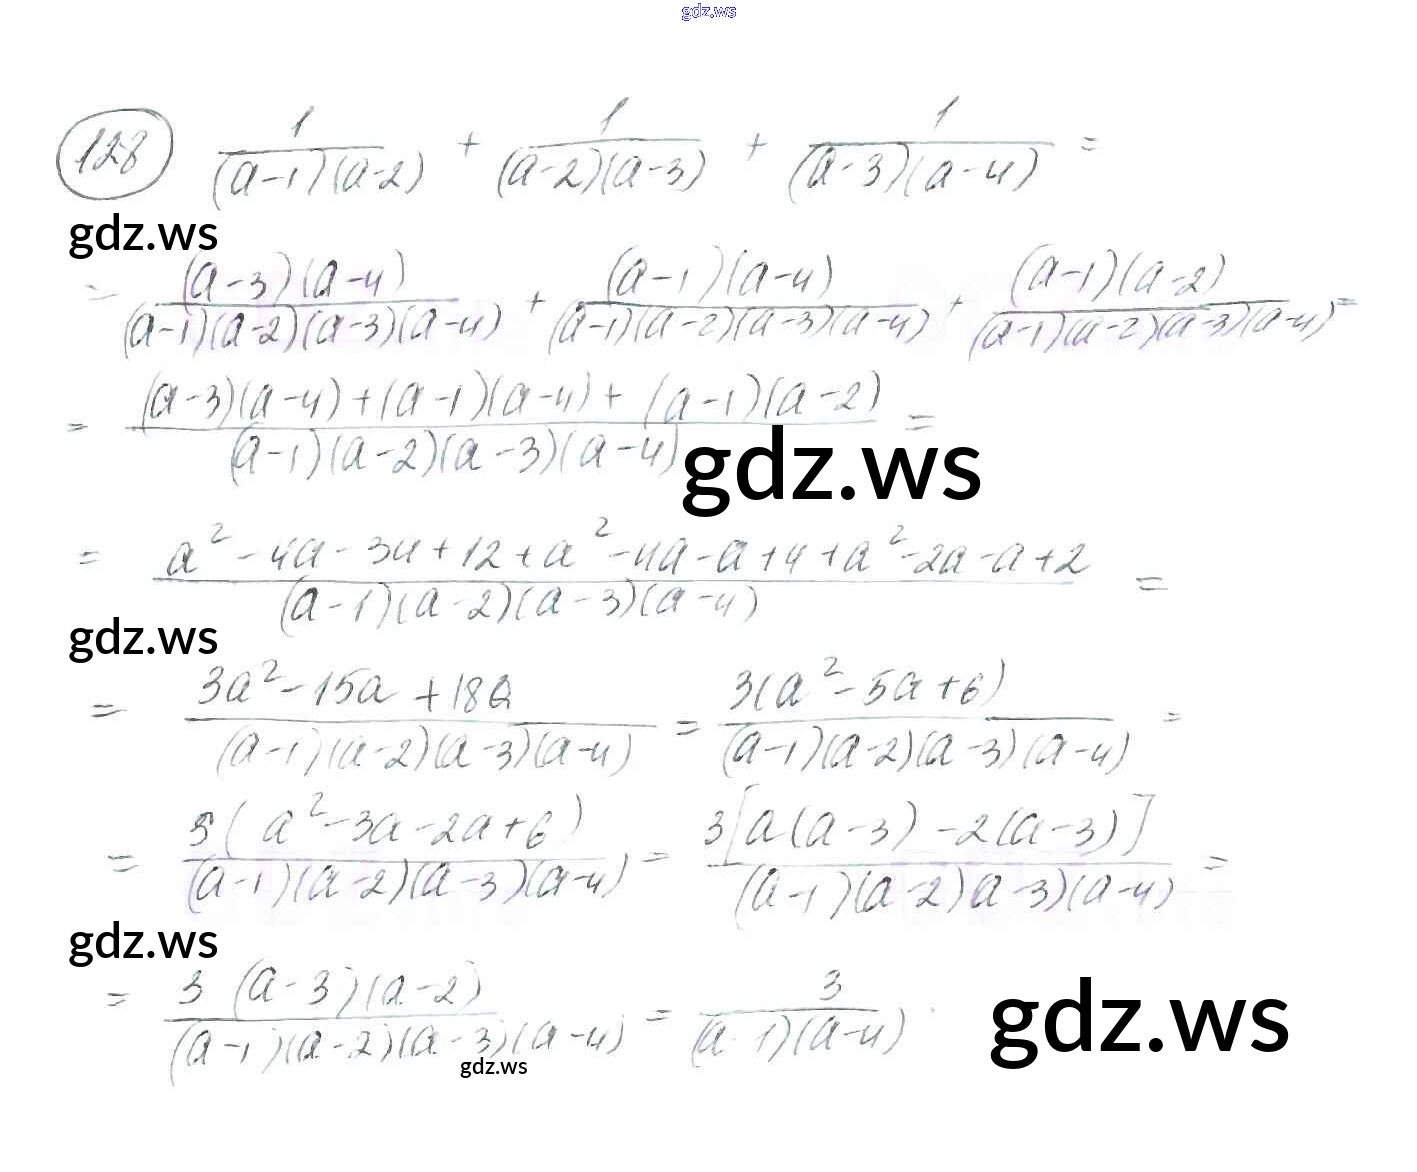 gdz.ws
128 1/((a-1)(a-2)) + 1/((a-2)(a-3)) + 1/((a-3)(a-4)) =
gdz.ws
= ((a-3)(a-4))/((a-1)(a-2)(a-3)(a-4)) + ((a-1)(a-4))/((a-1)(a-2)(a-3)(a-4)) + ((a-1)(a-2))/((a-1)(a-2)(a-3)(a-4)) =
= ((a-3)(a-4)+(a-1)(a-4)+(a-1)(a-2))/((a-1)(a-2)(a-3)(a-4)) =
gdz.ws
= (a²-4a-3a+12+a²-4a-a+4+a²-2a-a+2)/((a-1)(a-2)(a-3)(a-4)) =
gdz.ws
= (3a²-15a+18a)/((a-1)(a-2)(a-3)(a-4)) = (3(a²-5a+6))/((a-1)(a-2)(a-3)(a-4)) =
= (3(a²-3a-2a+6))/((a-1)(a-2)(a-3)(a-4)) = (3[a(a-3)-2(a-3)])/((a-1)(a-2)a-3)(a-4)) =
gdz.ws
= (3(a-3)(a-2))/((a-1)(a-2)(a-3)(a-4)) = 3/((a-1)(a-4)).
gdz.ws
gdz.ws